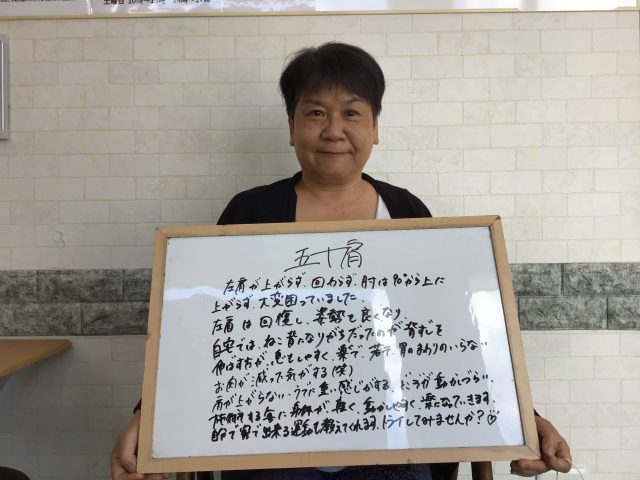 土曜日
五十肩
左肩が上がらず、回わらず、肘は90°から上に
上がらず、大変困っていました。
左肩は回復し、姿勢も良くなり、
自宅では、ねこ背になりがちだったのが、背すじを
伸ばす方が、息もしやすく、楽で、若干、胃のまわりのいらない
お肉が減った気がする(笑)
肩が上がらない、うでに重い感じがする、どこが動かしづらい、
施術する毎に身体が軽く、動かしやすく楽になっていきます。
自宅で出来る運動も教えてくれます。トライしてみませんか?♡